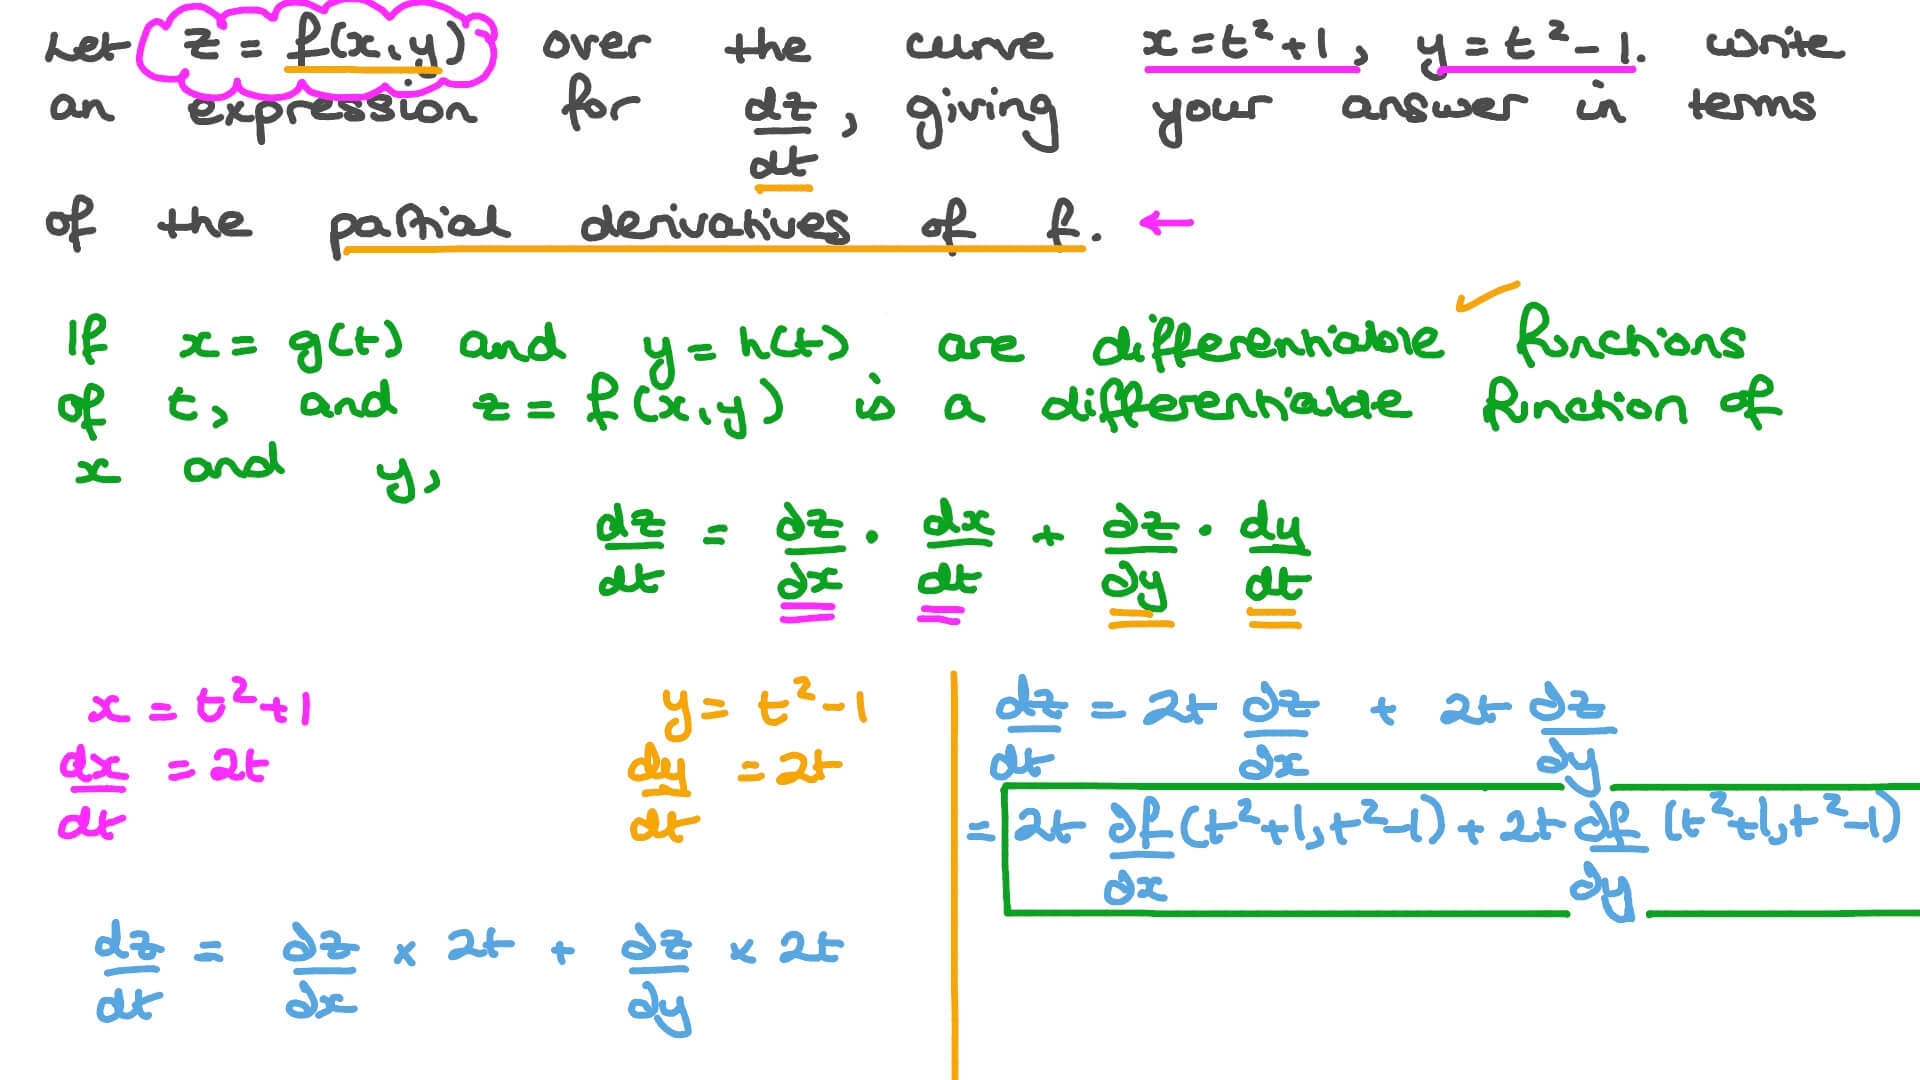 Let z = f(x,y) over the curve x = t²+1, y = t²-1. Write
an expression for dz/dt, giving your answer in terms
of the partial derivatives of f. ←
If x = g(t) and y = h(t) are differentiable ✓ functions
of t, and z = f(x,y) is a differentiable function of
x and y,
dz/dt = ∂z/∂x · dx/dt + ∂z/∂y · dy/dt
x = t²+1
dx/dt = 2t
y = t²-1
dy/dt = 2t
dz/dt = ∂z/∂x × 2t + ∂z/∂y × 2t
dz/dt = 2t ∂z/∂x + 2t ∂z/∂y
= 2t ∂f/∂x (t²+1, t²-1) + 2t ∂f/∂y (t²+1, t²-1)